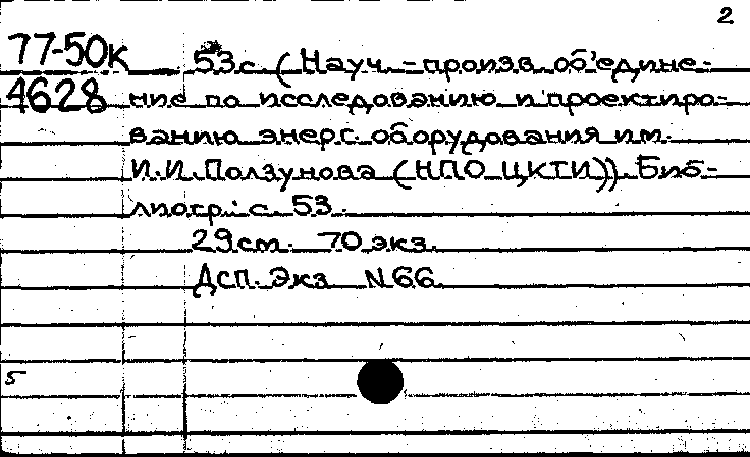 2
77-50к 53с. (Науч.-произв. об'едине-
4628 ние по исследованию и проектиро-
ванию энерг. оборудования им.
И.И. Ползунова (НПО ЦКТИ)). Биб-
лиогр.: с. 53.
29см. 70 экз.
Дсп. Экз N66.
5